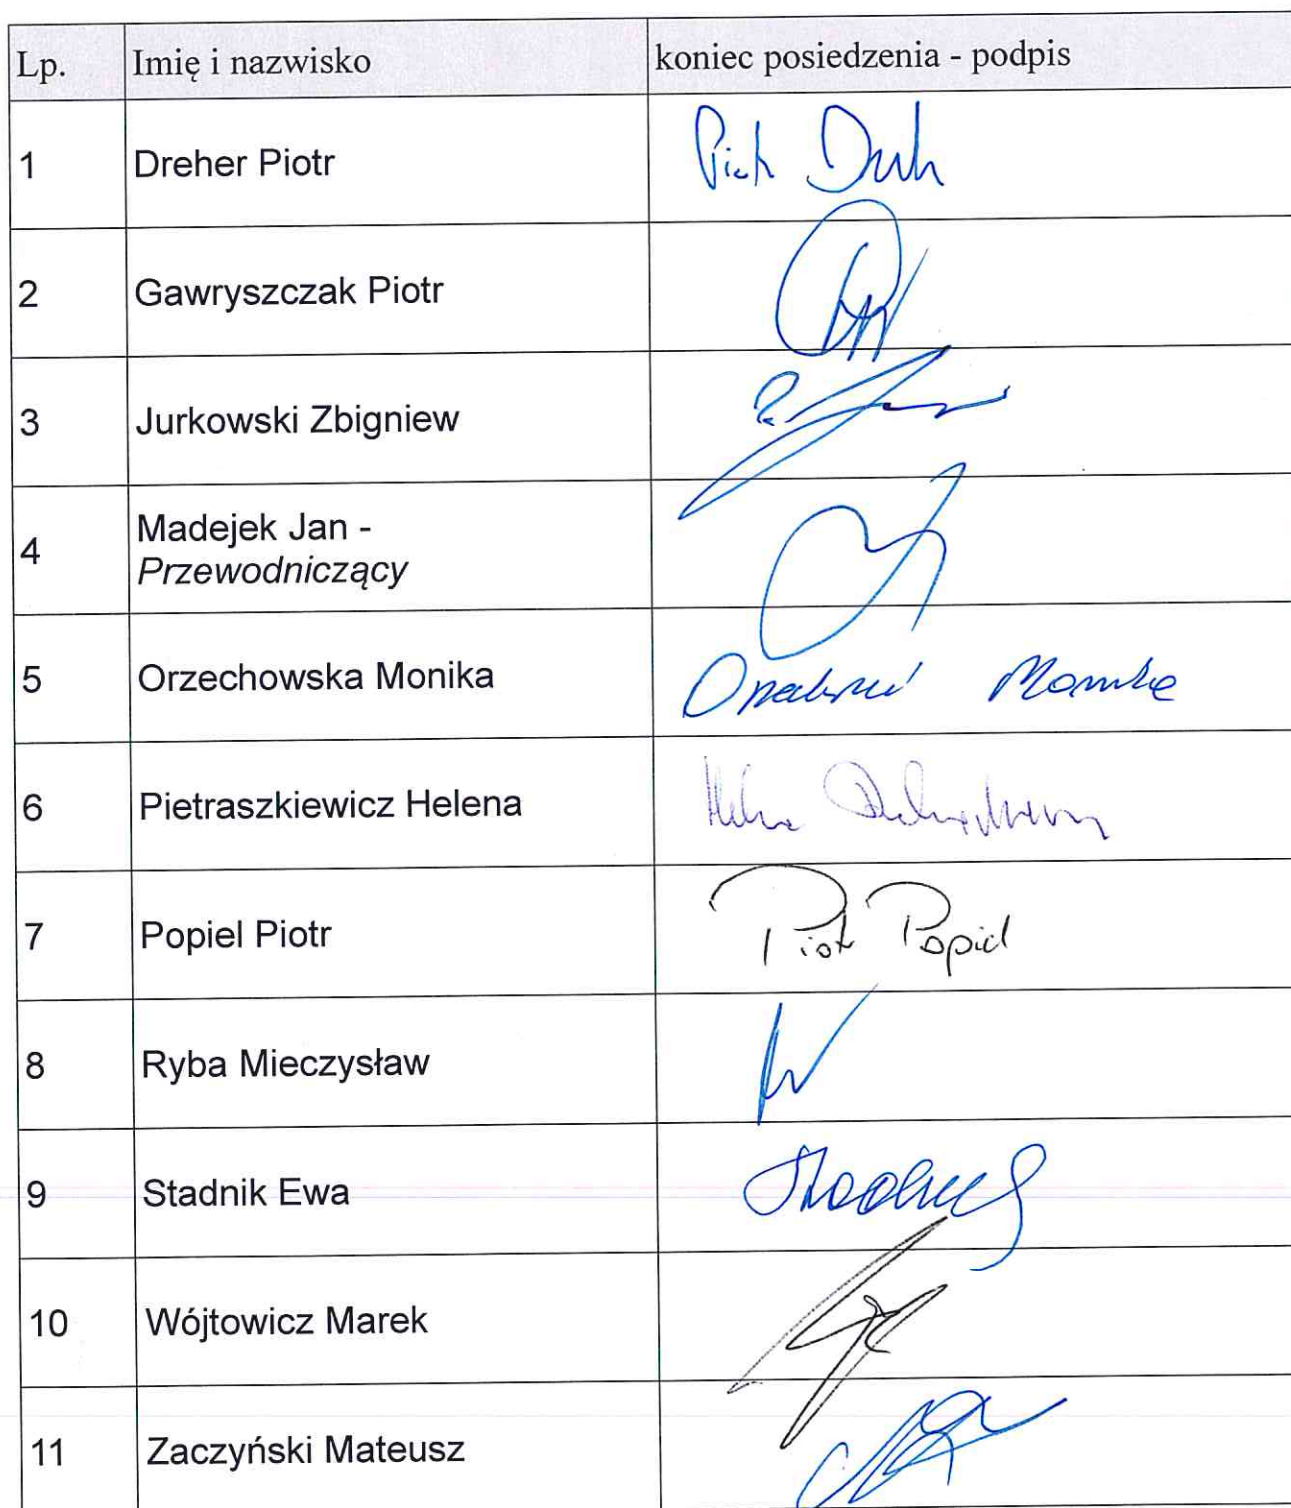 Lp. Imię i nazwisko koniec posiedzenia - podpis
1 Dreher Piotr Piotr
2 Gawryszczak Piotr
3 Jurkowski Zbigniew
4 Madejek Jan -
Przewodniczący
5 Orzechowska Monika Monika
6 Pietraszkiewicz Helena Helena
7 Popiel Piotr Piotr Popiel
8 Ryba Mieczysław
9 Stadnik Ewa
10 Wójtowicz Marek
11 Zaczyński Mateusz